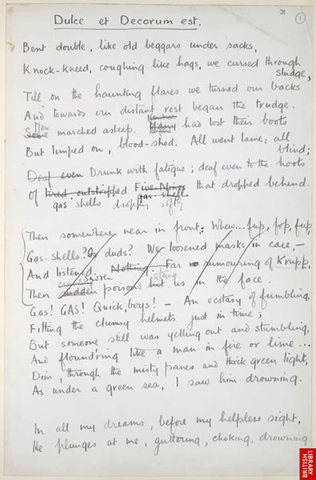 21
1
Dulce et Decorum est.
Bent double, like old beggars under sacks,
Knock-kneed, coughing like hags, we cursed through
sludge,
Till on the haunting flares we turned our backs
And towards our distant rest began the trudge.
Some Men marched asleep. Many had lost their boots
But limped on, blood-shod. All went lame; all
blind;
Deaf even Drunk with fatigue; deaf even to the hoots
Of tired, outstripped Five-Nines that dropped behind.
gas shells dropping softly
Then somewhere near in front: Whew... fup, fop, fup,
Gas-shells? Or duds? We loosened masks in case, —
And listened. Nothing. Far rumouring of Krupp.
stung
Then sudden poison hit us in the face.
Gas! GAS! Quick, boys! — An ecstasy of fumbling,
Fitting the clumsy helmets just in time;
But someone still was yelling out and stumbling,
And floundring like a man in fire or lime...
Dim, through the misty panes and thick green light,
As under a green sea, I saw him drowning.
In all my dreams, before my helpless sight,
He plunges at me, guttering, choking, drowning.
BRITISH
LIBRARY